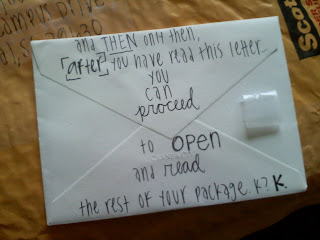 and THEN only then,
[after] you have read this letter
you
can
proceed
to OPEN
and read
the rest of your package k? K.
Scot